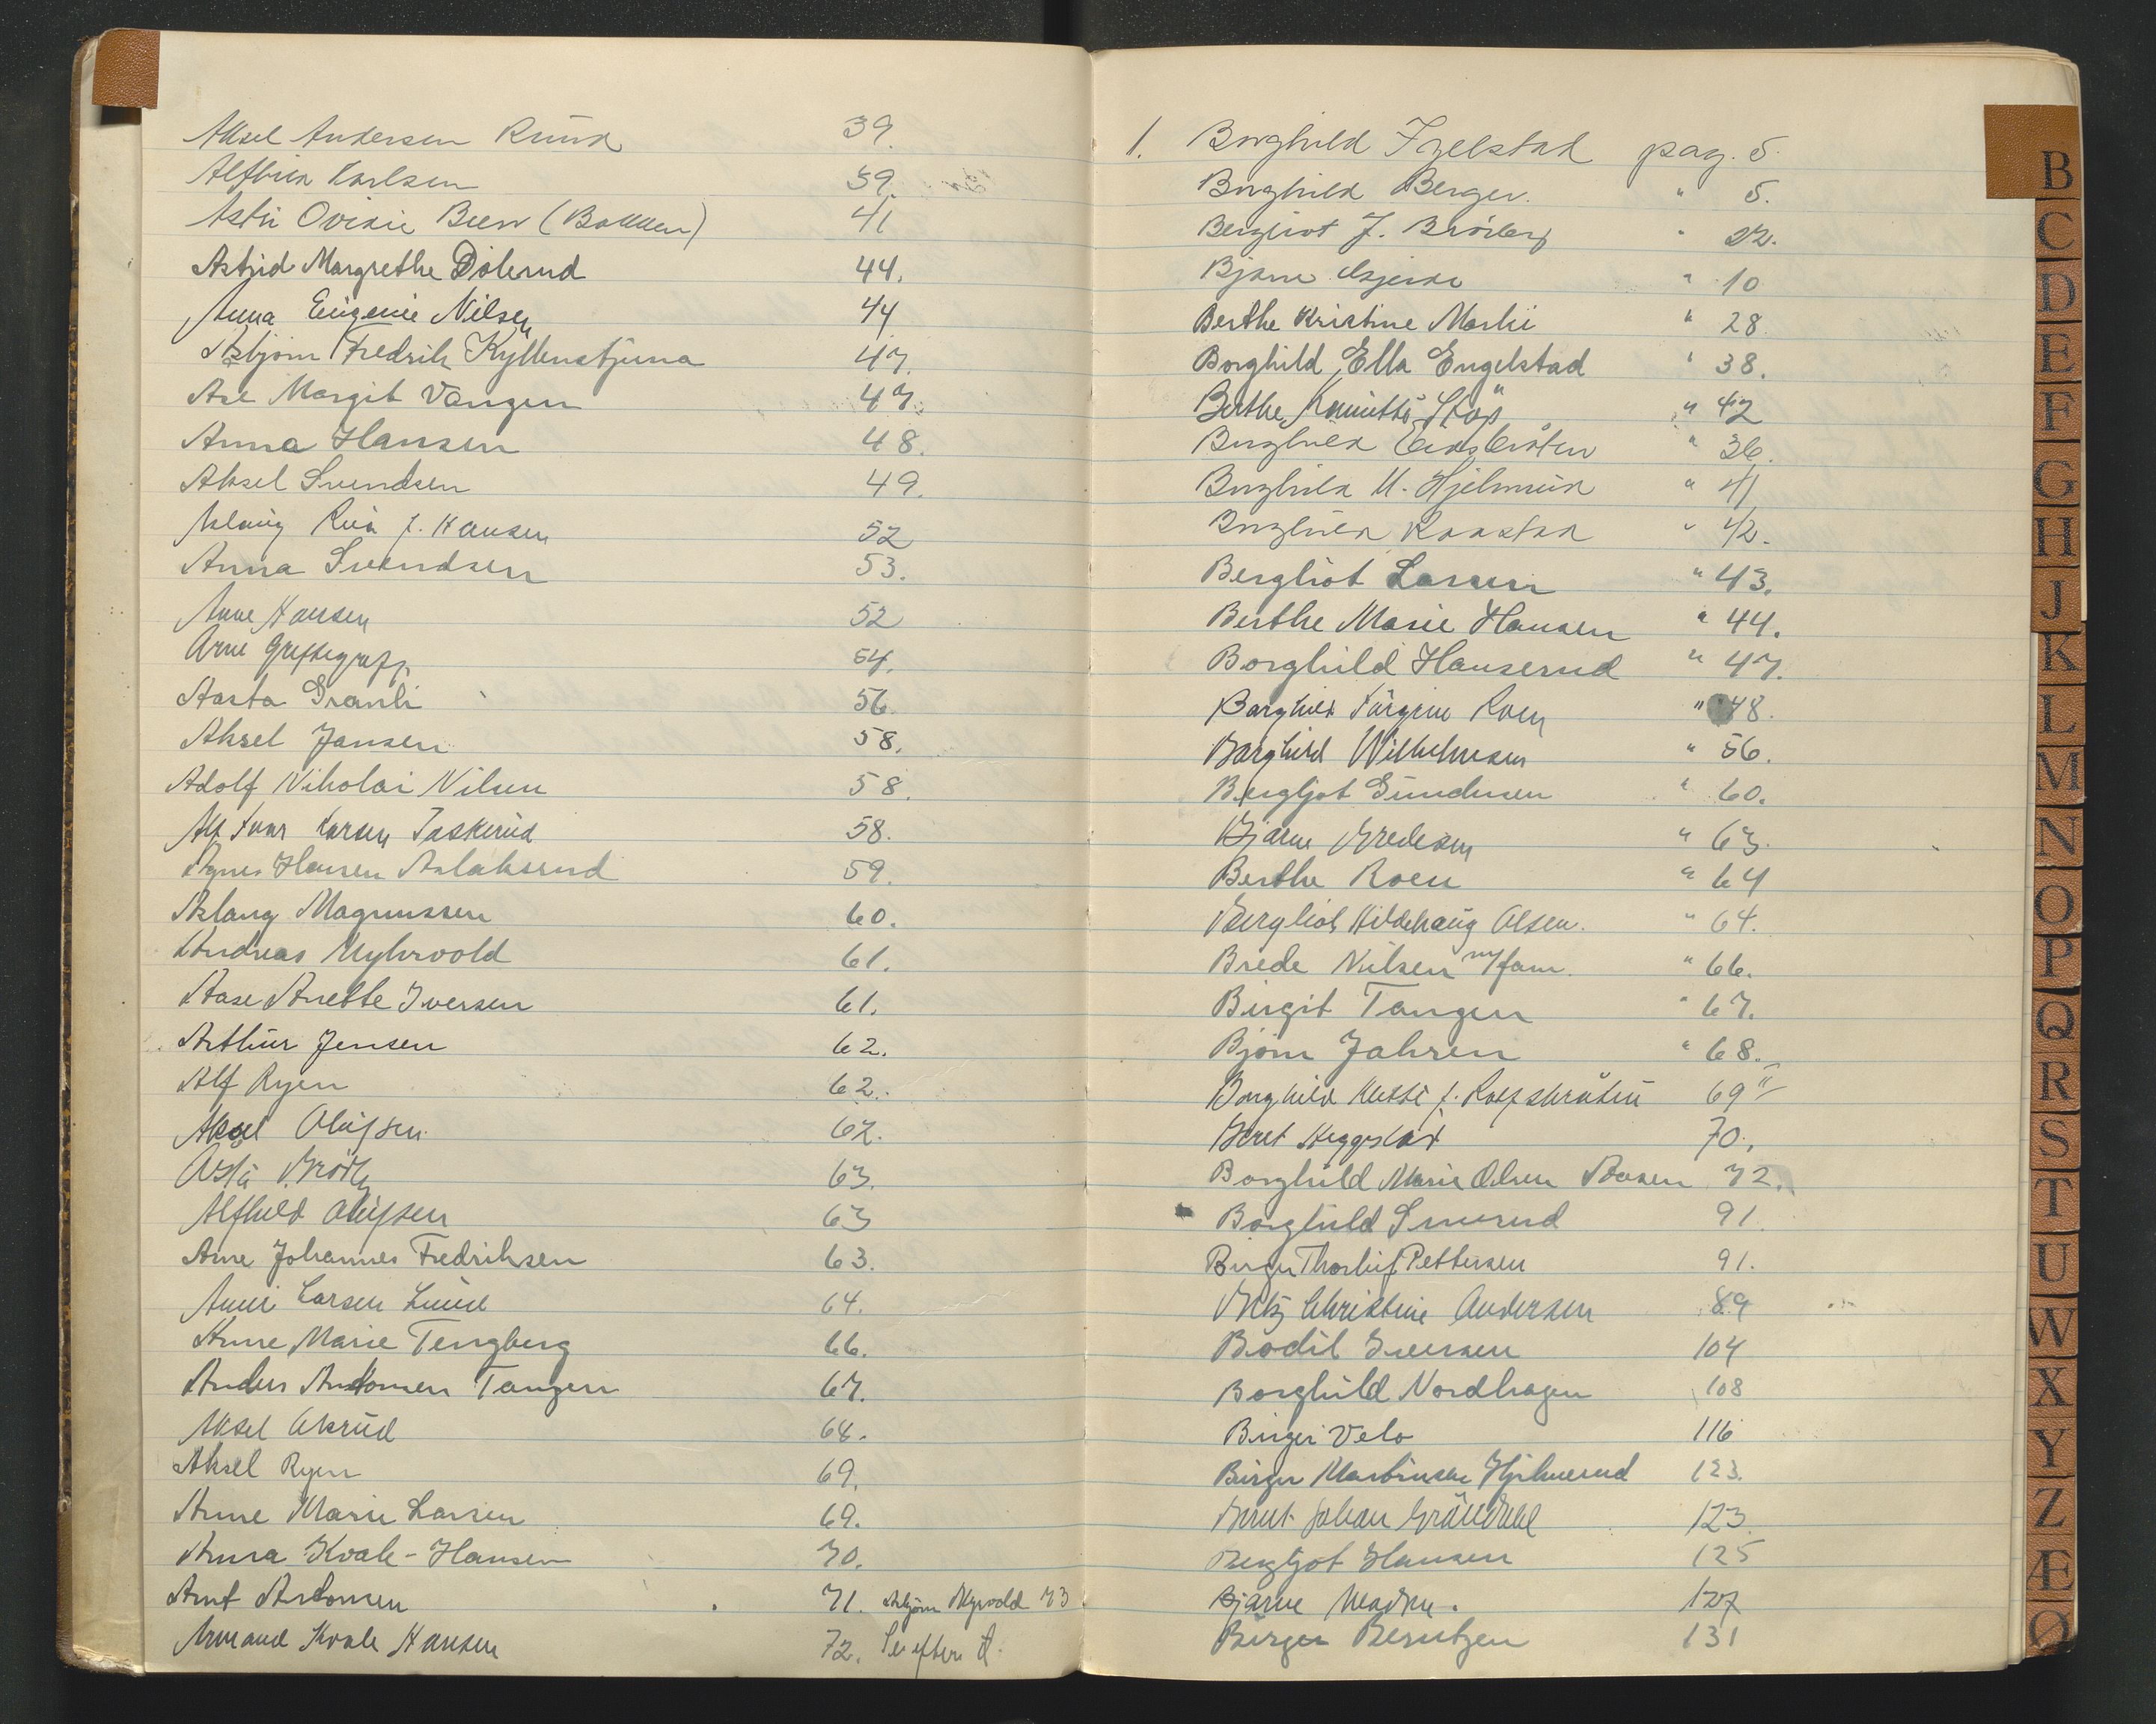 Aksel Andersen Rund 39.
Karlsen 39.
Ovidie Been (Bakken) 41
Astrid Margrethe Dølerud 44.
Anna Eugenie Nilsen 44
Asbjørn Fredrik Kyllenstjerna 47.
Åse Margit Vangen 47.
Anna Hansen 48.
Aksel Svendsen 49.
Aslaug f. Hansen 52
Anna Svendsen 53.
Anne Hansen 52
Arne Greftegreff 54.
Aasta Granli 56.
Aksel Jansen 58.
Adolf Nikolai Nilsen 58.
Alf Ivar Larsen Taskerud 58.
Agnes Hansen Aslaksrud 59.
Aslaug Magnussen 60.
Andreas Myhrvold 61.
Aase Anette Iversen 61.
Arthur Jensen 62.
Alf Ryen 62.
Aksel Olufsen 62.
Asta 63.
Alfhild Olufsen 63
Arne Johannes Fredriksen 63.
Larsen 64.
Anne Marie Tengberg 66.
Anders Antonsen Tangen 67.
Aksel Akrud 68.
Aksel Ryen 69.
Anne Marie Larsen 69.
Anna Kvale-Hansen 70.
Arnt Antonsen 71. Asbjørn Myrvold 73
Armand Kvale Hansen 72. Se efter
1. Borghild Igelstad pag. 5.
Borghild Berger. " 5.
Bergliot J. " 22.
Bjarne " 10
Berthe Kristine Morli " 28.
Borghild Ella Engelstad " 38.
Berthe " 42
Borghild " 36.
Borghild M. Hjelmerud " 41
Borghild Raastad " 42.
Bergliot Larsen " 43.
Berthe Marie Hansen " 44.
Borghild Hanserud " 47.
Borghild Jørgine Roen " 48.
Borghild Wilhelmsen " 56.
Bergljot Gundersen " 60.
Bjarne Bredesen " 63.
Berthe Roen " 64
Bergliot Hildehaug Olsen. " 64.
Brede Nilsen m/fam. " 66.
Birgit Tangen " 67.
Bjørn Jahren " 68.
Borghild f. 69
Beret Heggstad 70.
Borghild Marie Olsen Aasen 72.
Borghild Smerud 91
Birger Thorleif Pettersen 91.
Christine Andersen 89
Bodil Iversen 104
Borghild Nordhagen 108
Birger Velo 116
Birger Martinsen Hjelmerud 123.
Bernt Johan Grøndahl 123
Bergljot Hansen 125
Bjarne 127
Birger Berntzen 131
B
C
D
E
F
G
H
J
K
L
M
N
O
P
Q
R
S
T
U
W
X
Y
Z
Æ
Ø